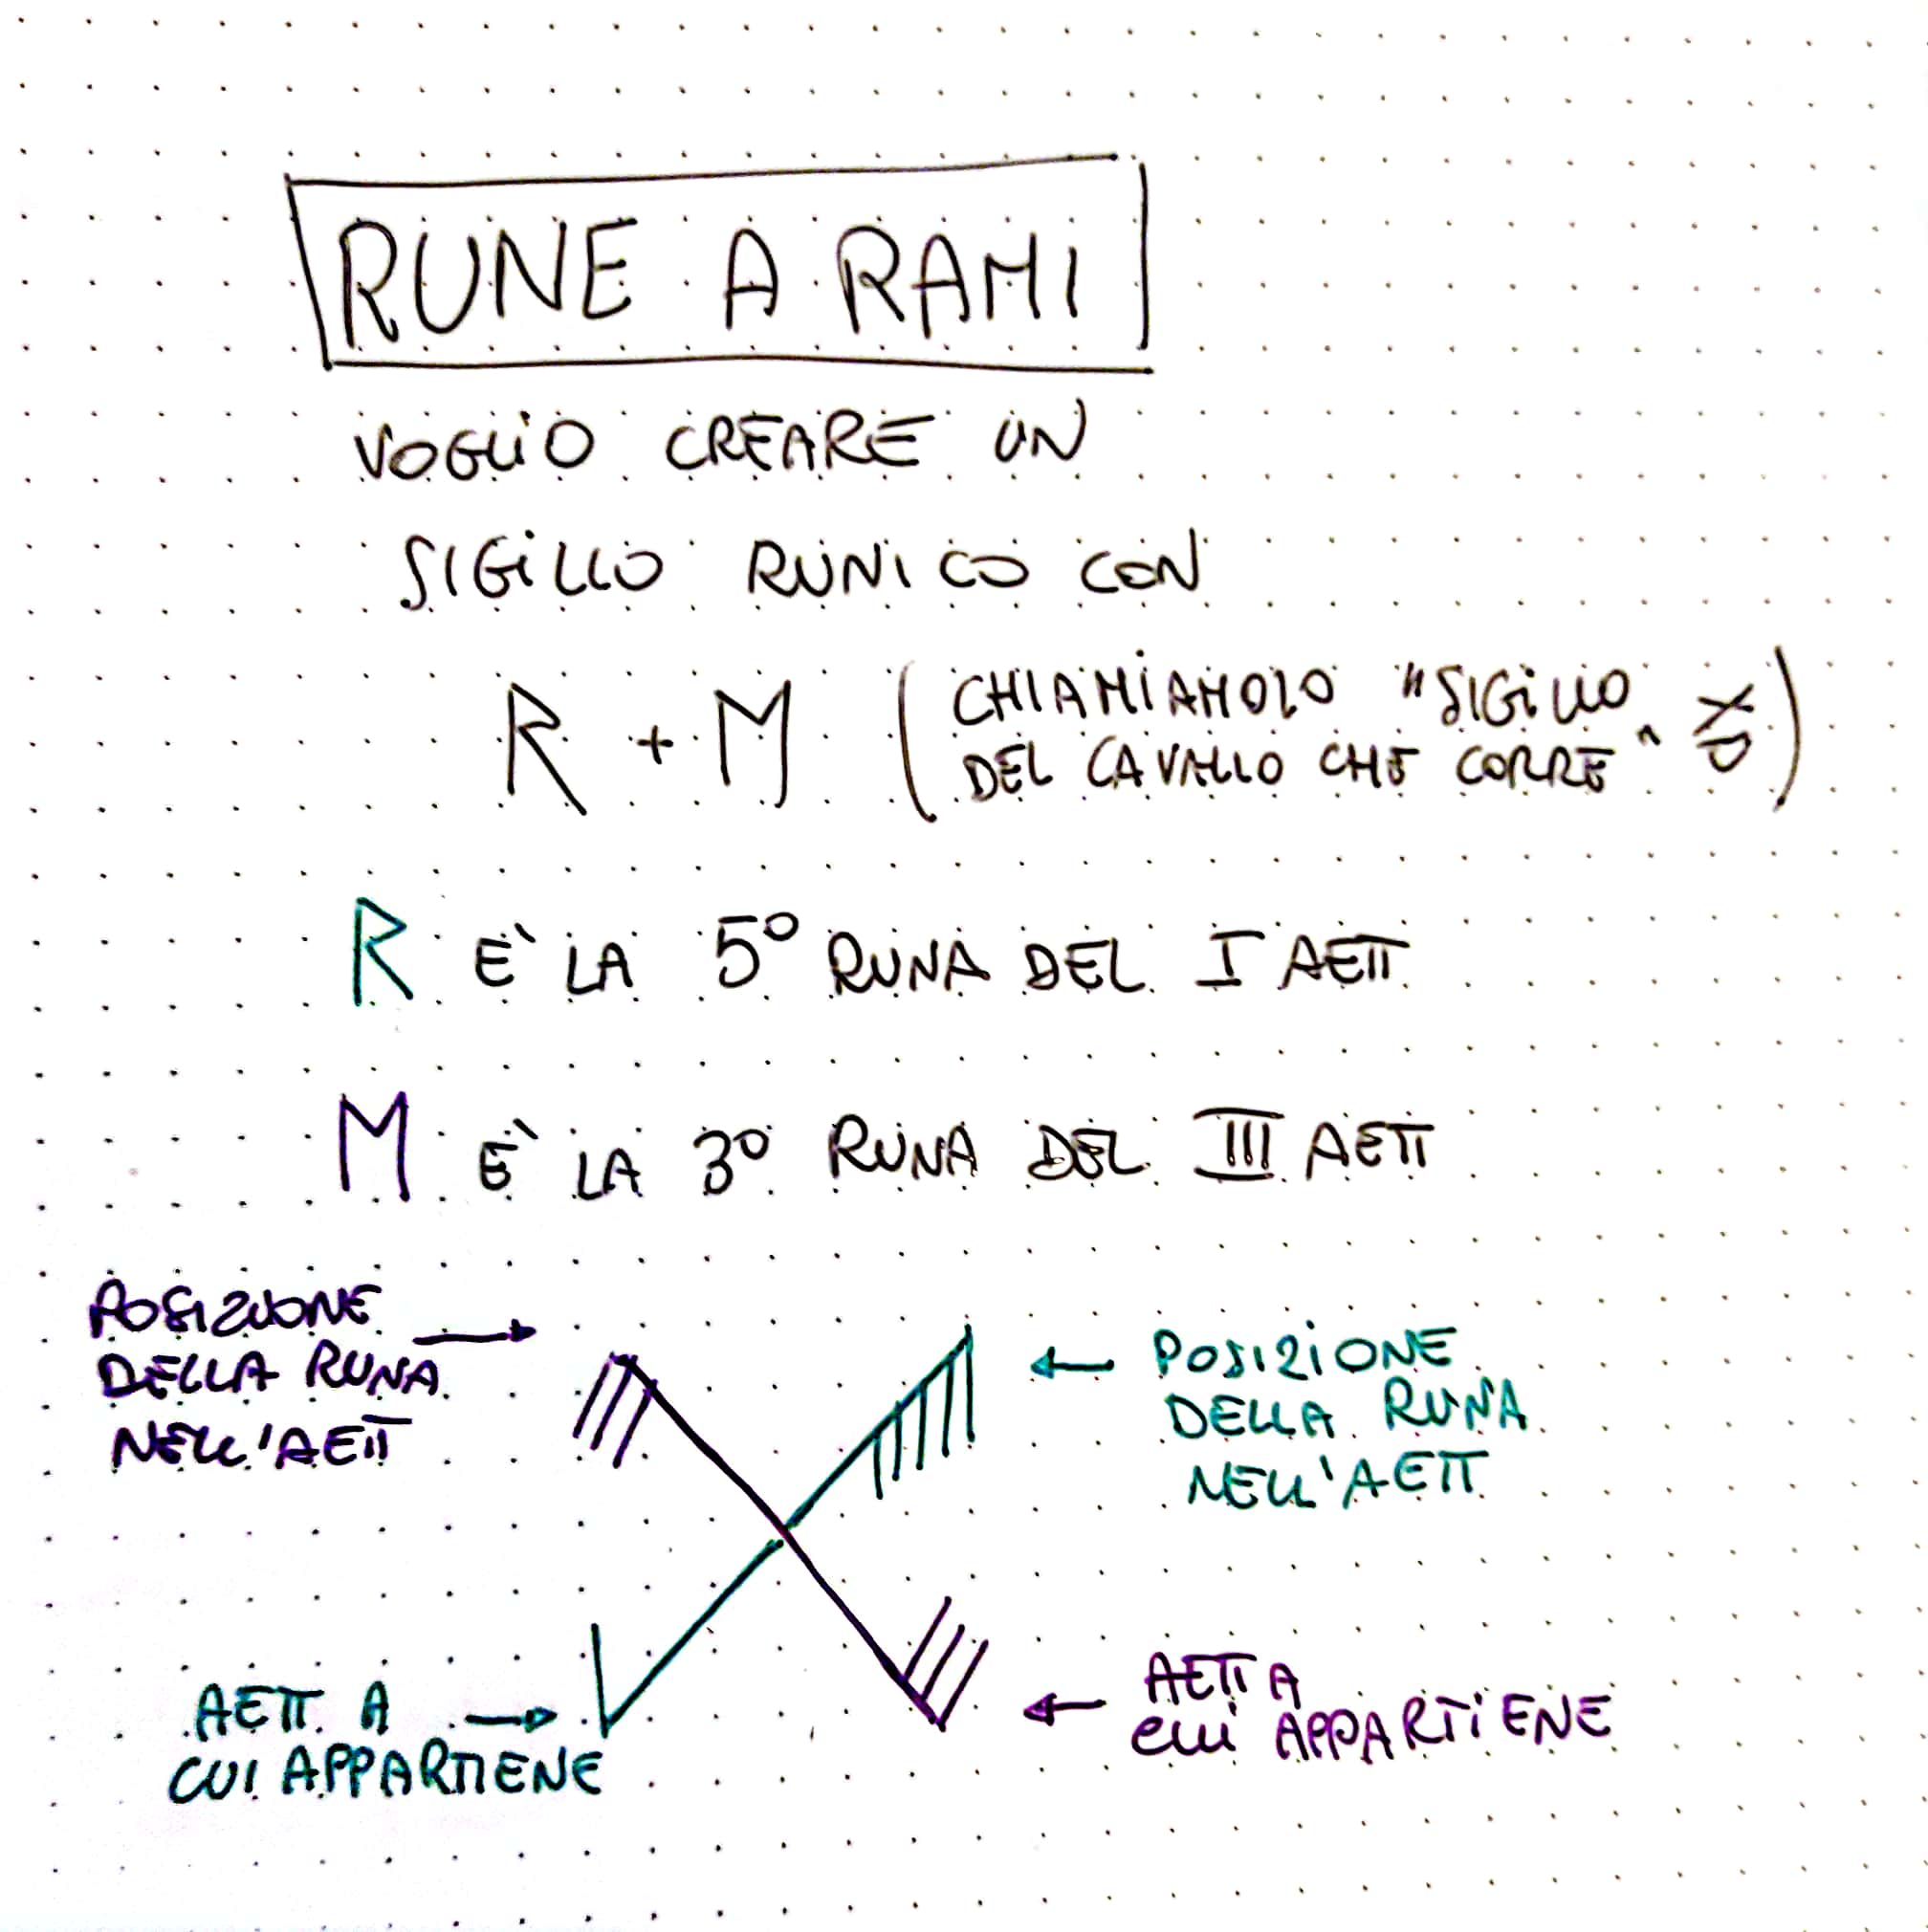 RUNE A RAMI
VOGLIO CREARE UN
SIGILLO RUNICO CON
ᚱ + ᛖ (CHIAMIAMOLO "SIGILLO
DEL CAVALLO CHE CORRE" XD)
ᚱ E' LA 5° RUNA DEL I AETT
ᛖ E' LA 3° RUNA DEL III AETT
POSIZIONE
DELLA RUNA
NELL'AETT
POSIZIONE
DELLA RUNA
NELL'AETT
AETT A
CUI APPARTIENE
AETT A
CUI APPARTIENE